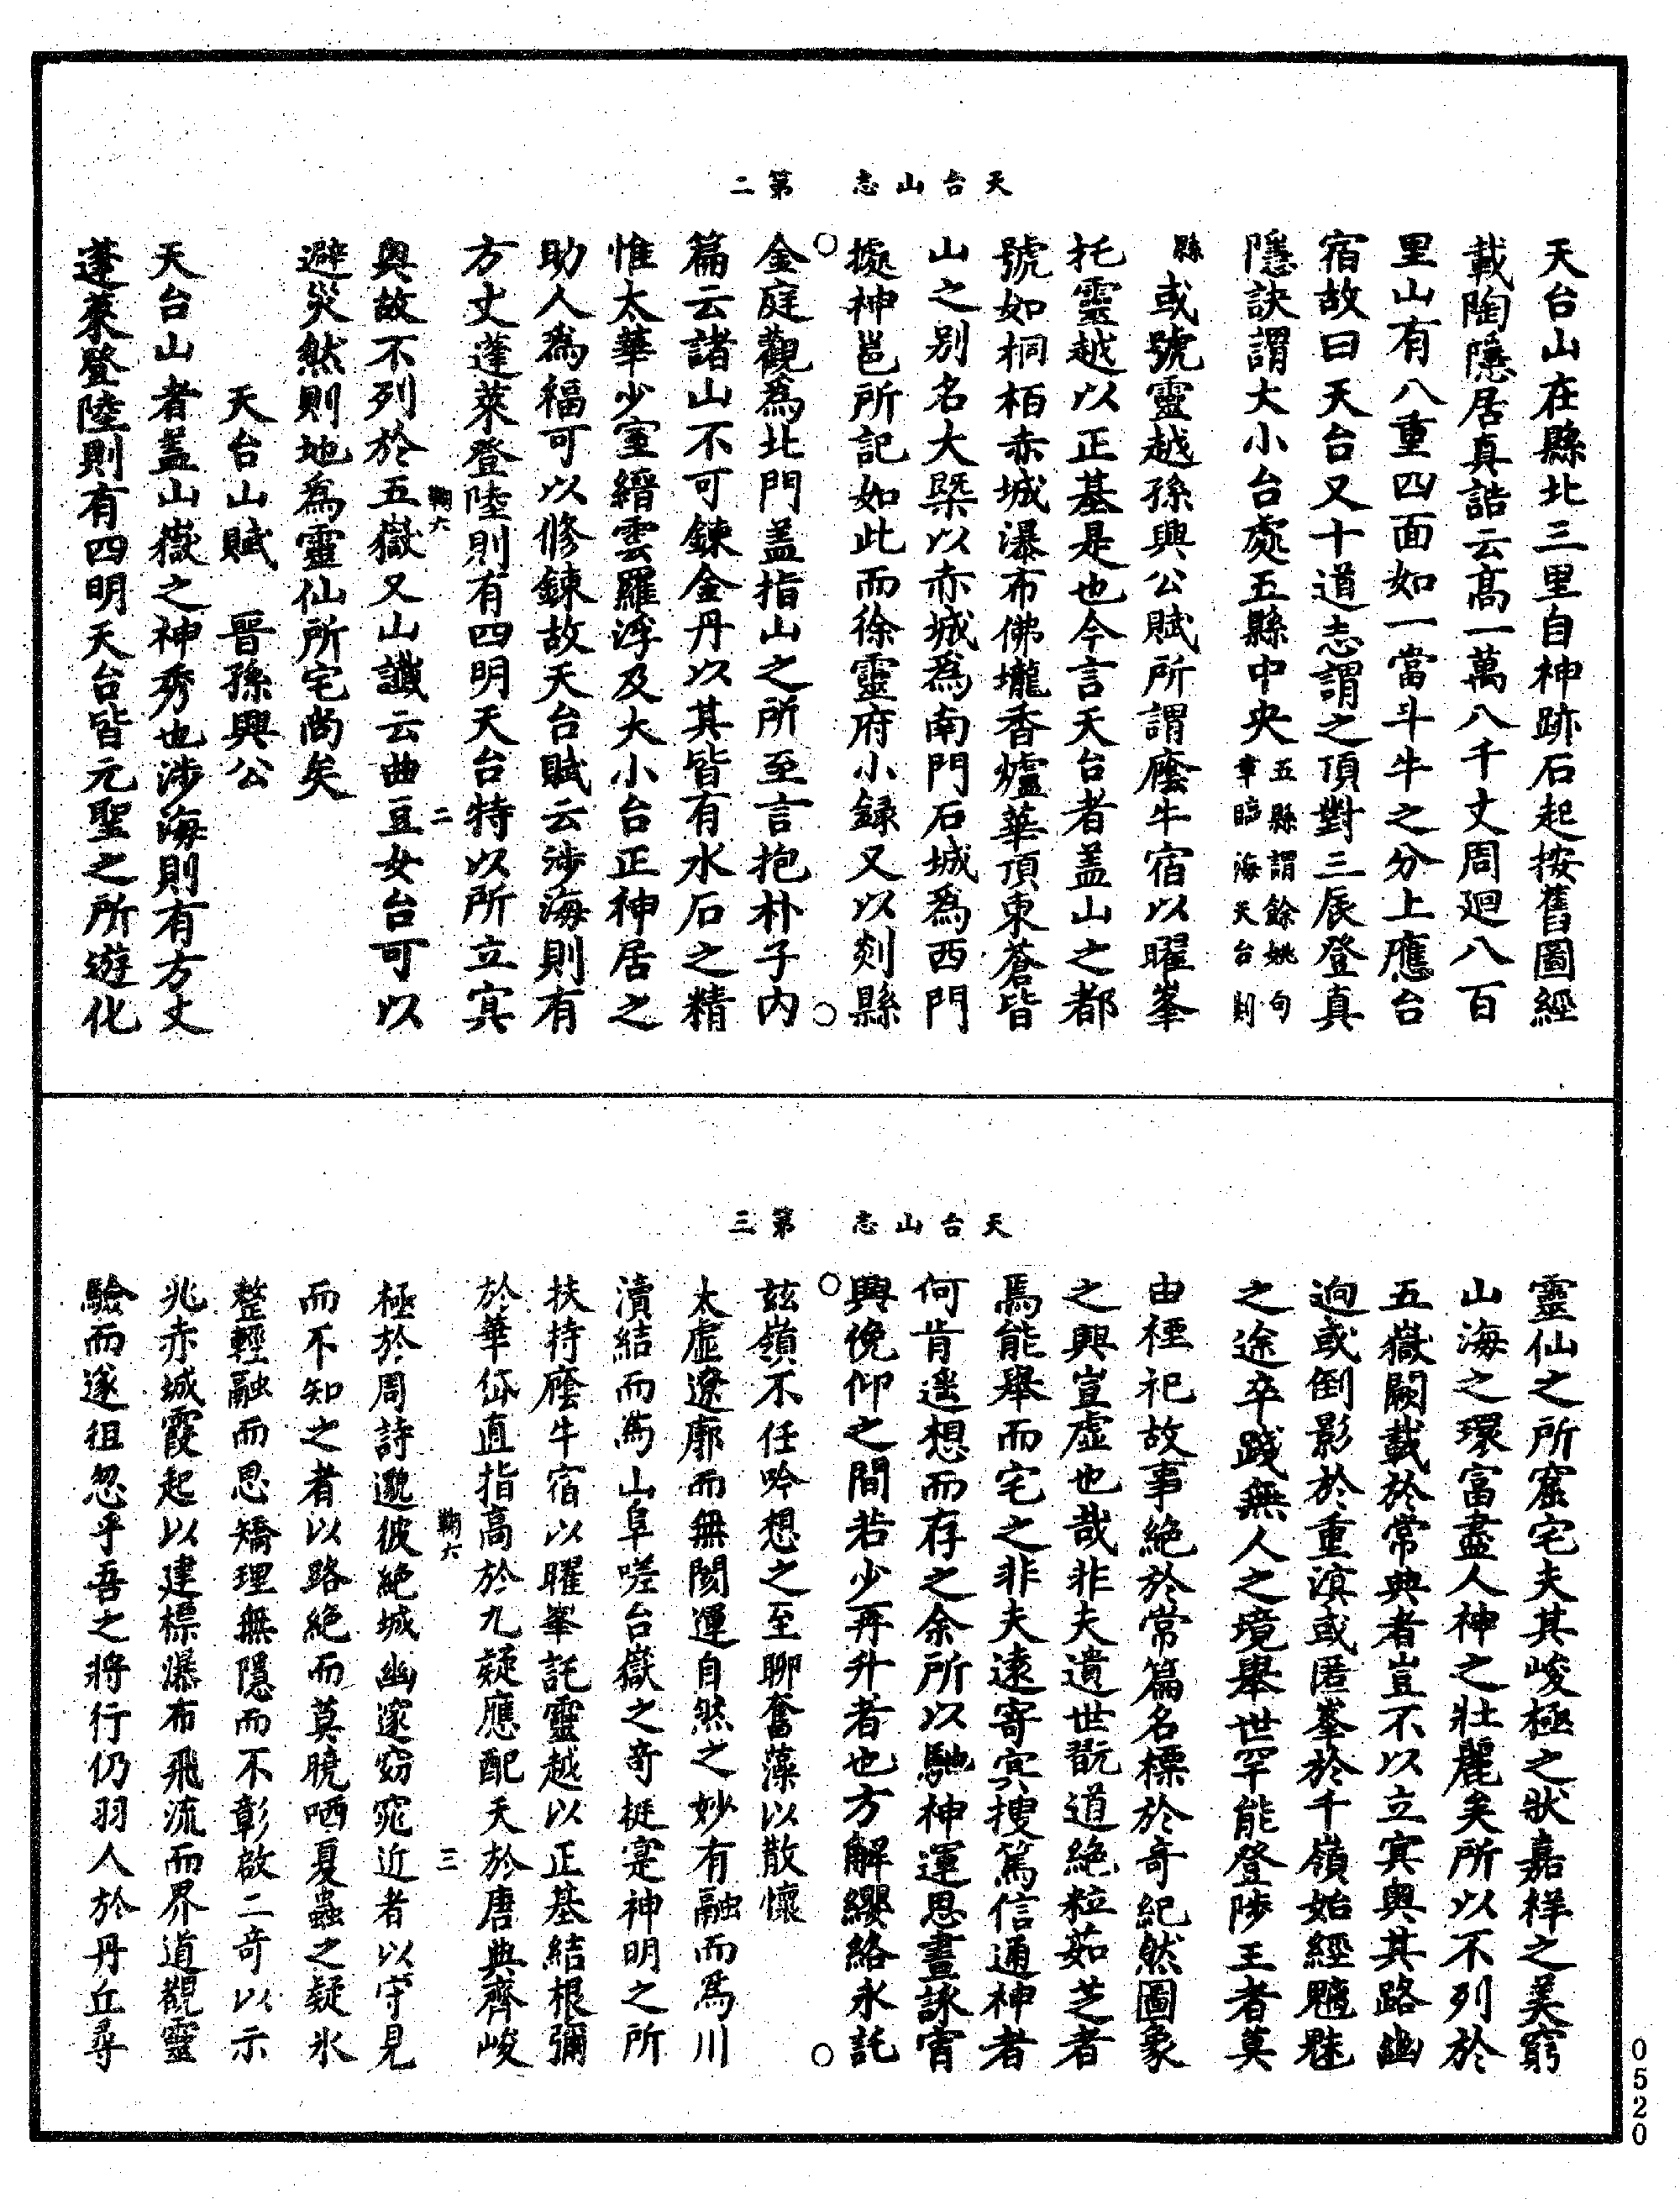 天台山志　第二
天台山在縣北三里自神跡石起按舊圖經
載陶隱居真誥云高一萬八千丈周迴八百
里山有八重四面如一當斗牛之分上應台
宿故曰天台又十道志謂之頂對三辰登真
隱訣謂大小台處五縣中央五縣謂餘姚句章臨海天台剡
縣或號靈越孫興公賦所謂䕃牛宿以曜峯
托靈越以正基是也今言天台者盖山之都
號如桐栢赤城瀑布佛壠香爐華頂東蒼皆
山之別名大槩以赤城為南門石城為西門
據神邕所記如此而徐靈府小録又以剡縣
金庭觀為北門盖指山之所至言抱朴子内
篇云諸山不可鍊金丹以其皆有水石之精
惟太華少室縉雲羅浮及大小台正神居之
助人為福可以修鍊故天台賦云涉海則有
方丈蓬萊登陸則有四明天台特以所立冥
鞠六　二
奥故不列於五嶽又山讖云曲豆女台可以
避災然則地為靈仙所宅尚矣
天台山賦　晉孫興公
天台山者盖山嶽之神秀也涉海則有方丈
蓬萊登陸則有四明天台皆元聖之所遊化
天台山志　第三
靈仙之所窟宅夫其峻極之狀嘉祥之美窮
山海之環富盡人神之壯麗矣所以不列於
五嶽闕載於常典者豈不以立冥奥其路幽
逈或倒影於重溟或匿峯於千嶺始經魑魅
之途卒踐無人之境舉世罕能登陟王者莫
由禋祀故事絶於常篇名標於奇紀然圖象
之興豈虚也哉非夫遺世翫道絶粒茹芝者
焉能舉而宅之非夫遠寄冥搜篤信通神者
何肯遥想而存之余所以馳神運思晝詠宵
興俛仰之間若少再升者也方解纓絡永託
兹嶺不任吟想之至聊奮藻以散懷
太虚遼廓而無閡運自然之妙有融而為川
瀆結而為山阜嗟台嶽之奇挺寔神明之所
扶持䕃牛宿以曜峯託靈越以正基結根彌
於華岱直指高於九疑應配天於唐典齊峻
鞠六　三
極於周詩邈彼絶域幽邃窈窕近者以守見
而不知之者以路絶而莫曉哂夏蟲之疑氷
整輕翮而思矯理無隱而不彰啟二奇以示
兆赤城霞起以建標瀑布飛流而界道覩靈
驗而遂徂忽乎吾之將行仍羽人於丹丘尋
0520